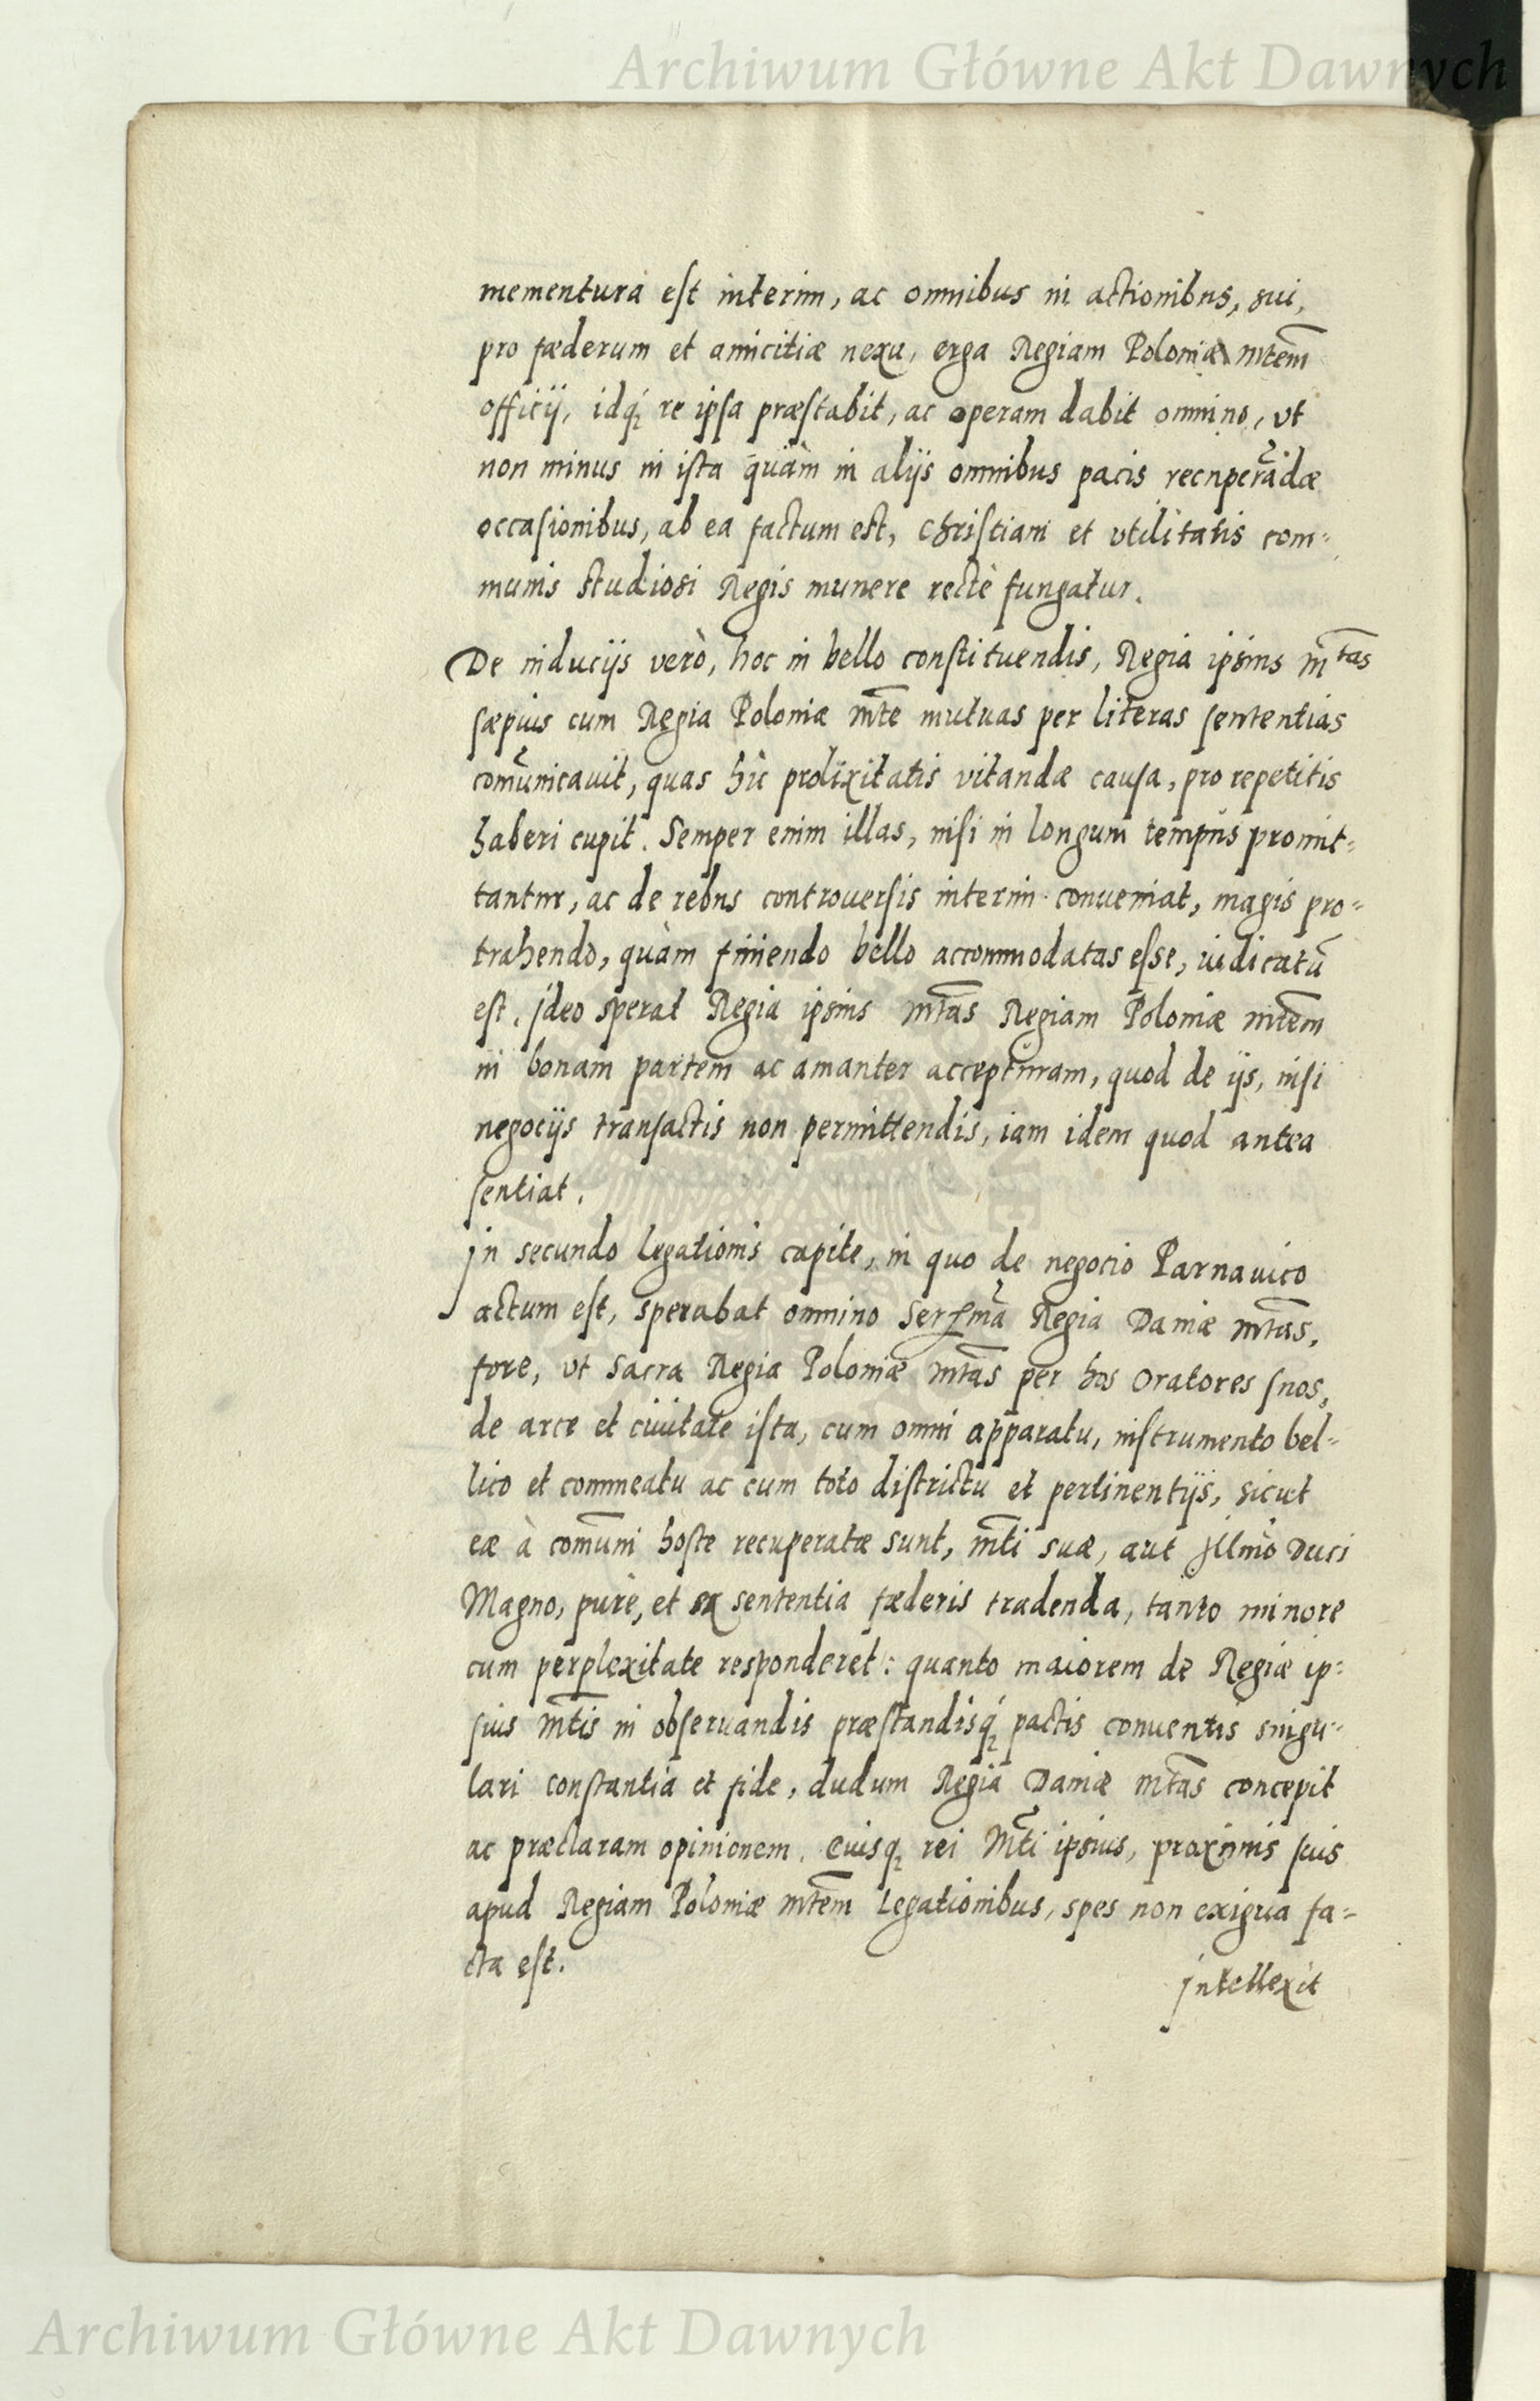 Archiwum Główne Akt Dawnych
mementura est interim, ac omnibus in actionibus, sui,
pro fæderum et amicitiæ nexu, erga Regiam Poloniæ mtem
officij, idq́ꝫ re ipsa præstabit, ac operam dabit omnino, vt
non minus in ista quàm in alijs omnibus pacis recuperãdæ
occasionibus, ab ea factum est, Christiani et vtilitatis com-
munis studiosi Regis munere rectè fungatur.
De inducijs verò, hoc in bello constituendis, Regia ipsius mtas
sæpius cum Regia Poloniæ mte mutuas per literas sententias
com̃unicauit, quas hîc prolixitatis vitandæ causa, pro repetitis
haberi cupit. Semper enim illas, nisi in longum tempus promit-
tantur, ac de rebus controuersis interim conueniat, magis pro-
trahendo, quàm finiendo bello accommodatas esse, iudicatũ
est. Ideo sperat Regia ipsius mtas Regiam Poloniæ mtem
in bonam partem ac amanter accepturam, quod de ijs, nisi
negocijs transactis non permittendis, iam idem quod antea
sentiat.
In secundo legationis capite, in quo de negocio Parnauico
actum est, sperabat omnino Serma Regia Daniæ mtas,
fore, vt Sacra Regia Poloniæ mtas per hos Oratores suos,
de arce et ciuitate ista, cum omni apparatu, instrumento bel-
lico et commeatu ac cum toto districtu et pertinentijs, sicut
eæ à com̃uni hoste recuperatæ sunt, mti suæ, aut Illmo Duci
Magno, purè, et ex sententia fæderis tradenda, tanto minore
cum perplexitate responderet: quanto maiorem de Regiæ ip-
sius mtis in obseruandis præstandisq́ꝫ pactis conuentis singu-
lari constantia et fide, dudum Regia Daniæ mtas concepit
ac præclaram opinionem. Euisqꝫ rei Mti ipsius, proximis suis
apud Regiam Poloniæ mtem Legationibus, spes non exigua fa-
cta est.
Intellexit
Archiwum Główne Akt Dawnych